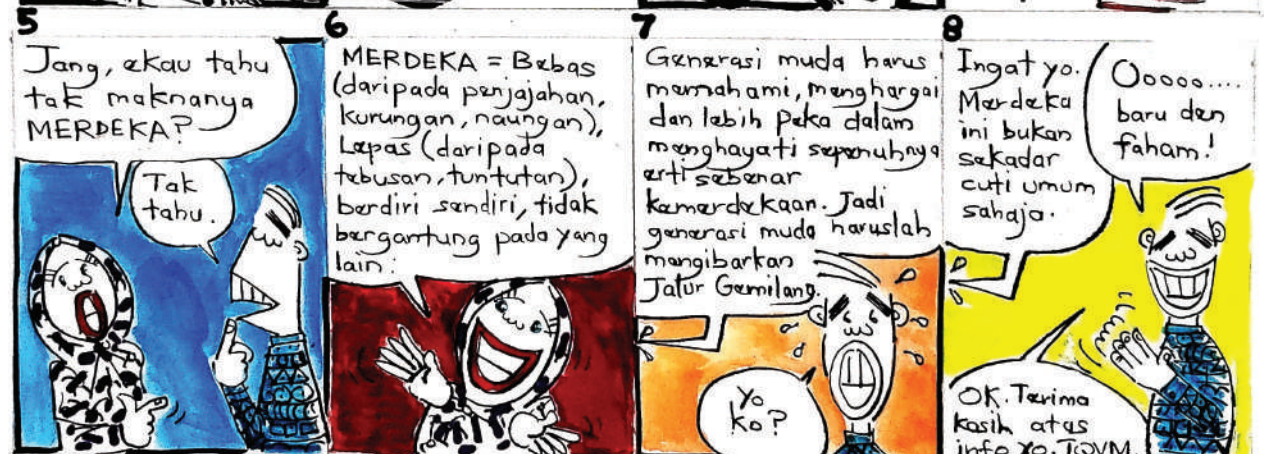 5
Jang, ekau tahu
tak maknanya
MERDEKA?
Tak
tahu.
6
MERDEKA = Bebas
(daripada penjajahan,
kurungan, naungan),
Lepas (daripada
tebusan, tuntutan),
berdiri sendiri, tidak
bergantung pada yang
lain.
7
Generasi muda harus
memahami, menghargai
dan lebih peka dalam
menghayati sepenuhnya
erti sebenar
kemerdekaan. Jadi
generasi muda haruslah
mengibarkan
Jalur Gemilang.
Yo
ko?
8
Ingat yo.
Merdeka
ini bukan
sekadar
cuti umum
sahaja.
Ooooo....
baru den
faham!
OK. Terima
kasih atas
info yo. TQVM.